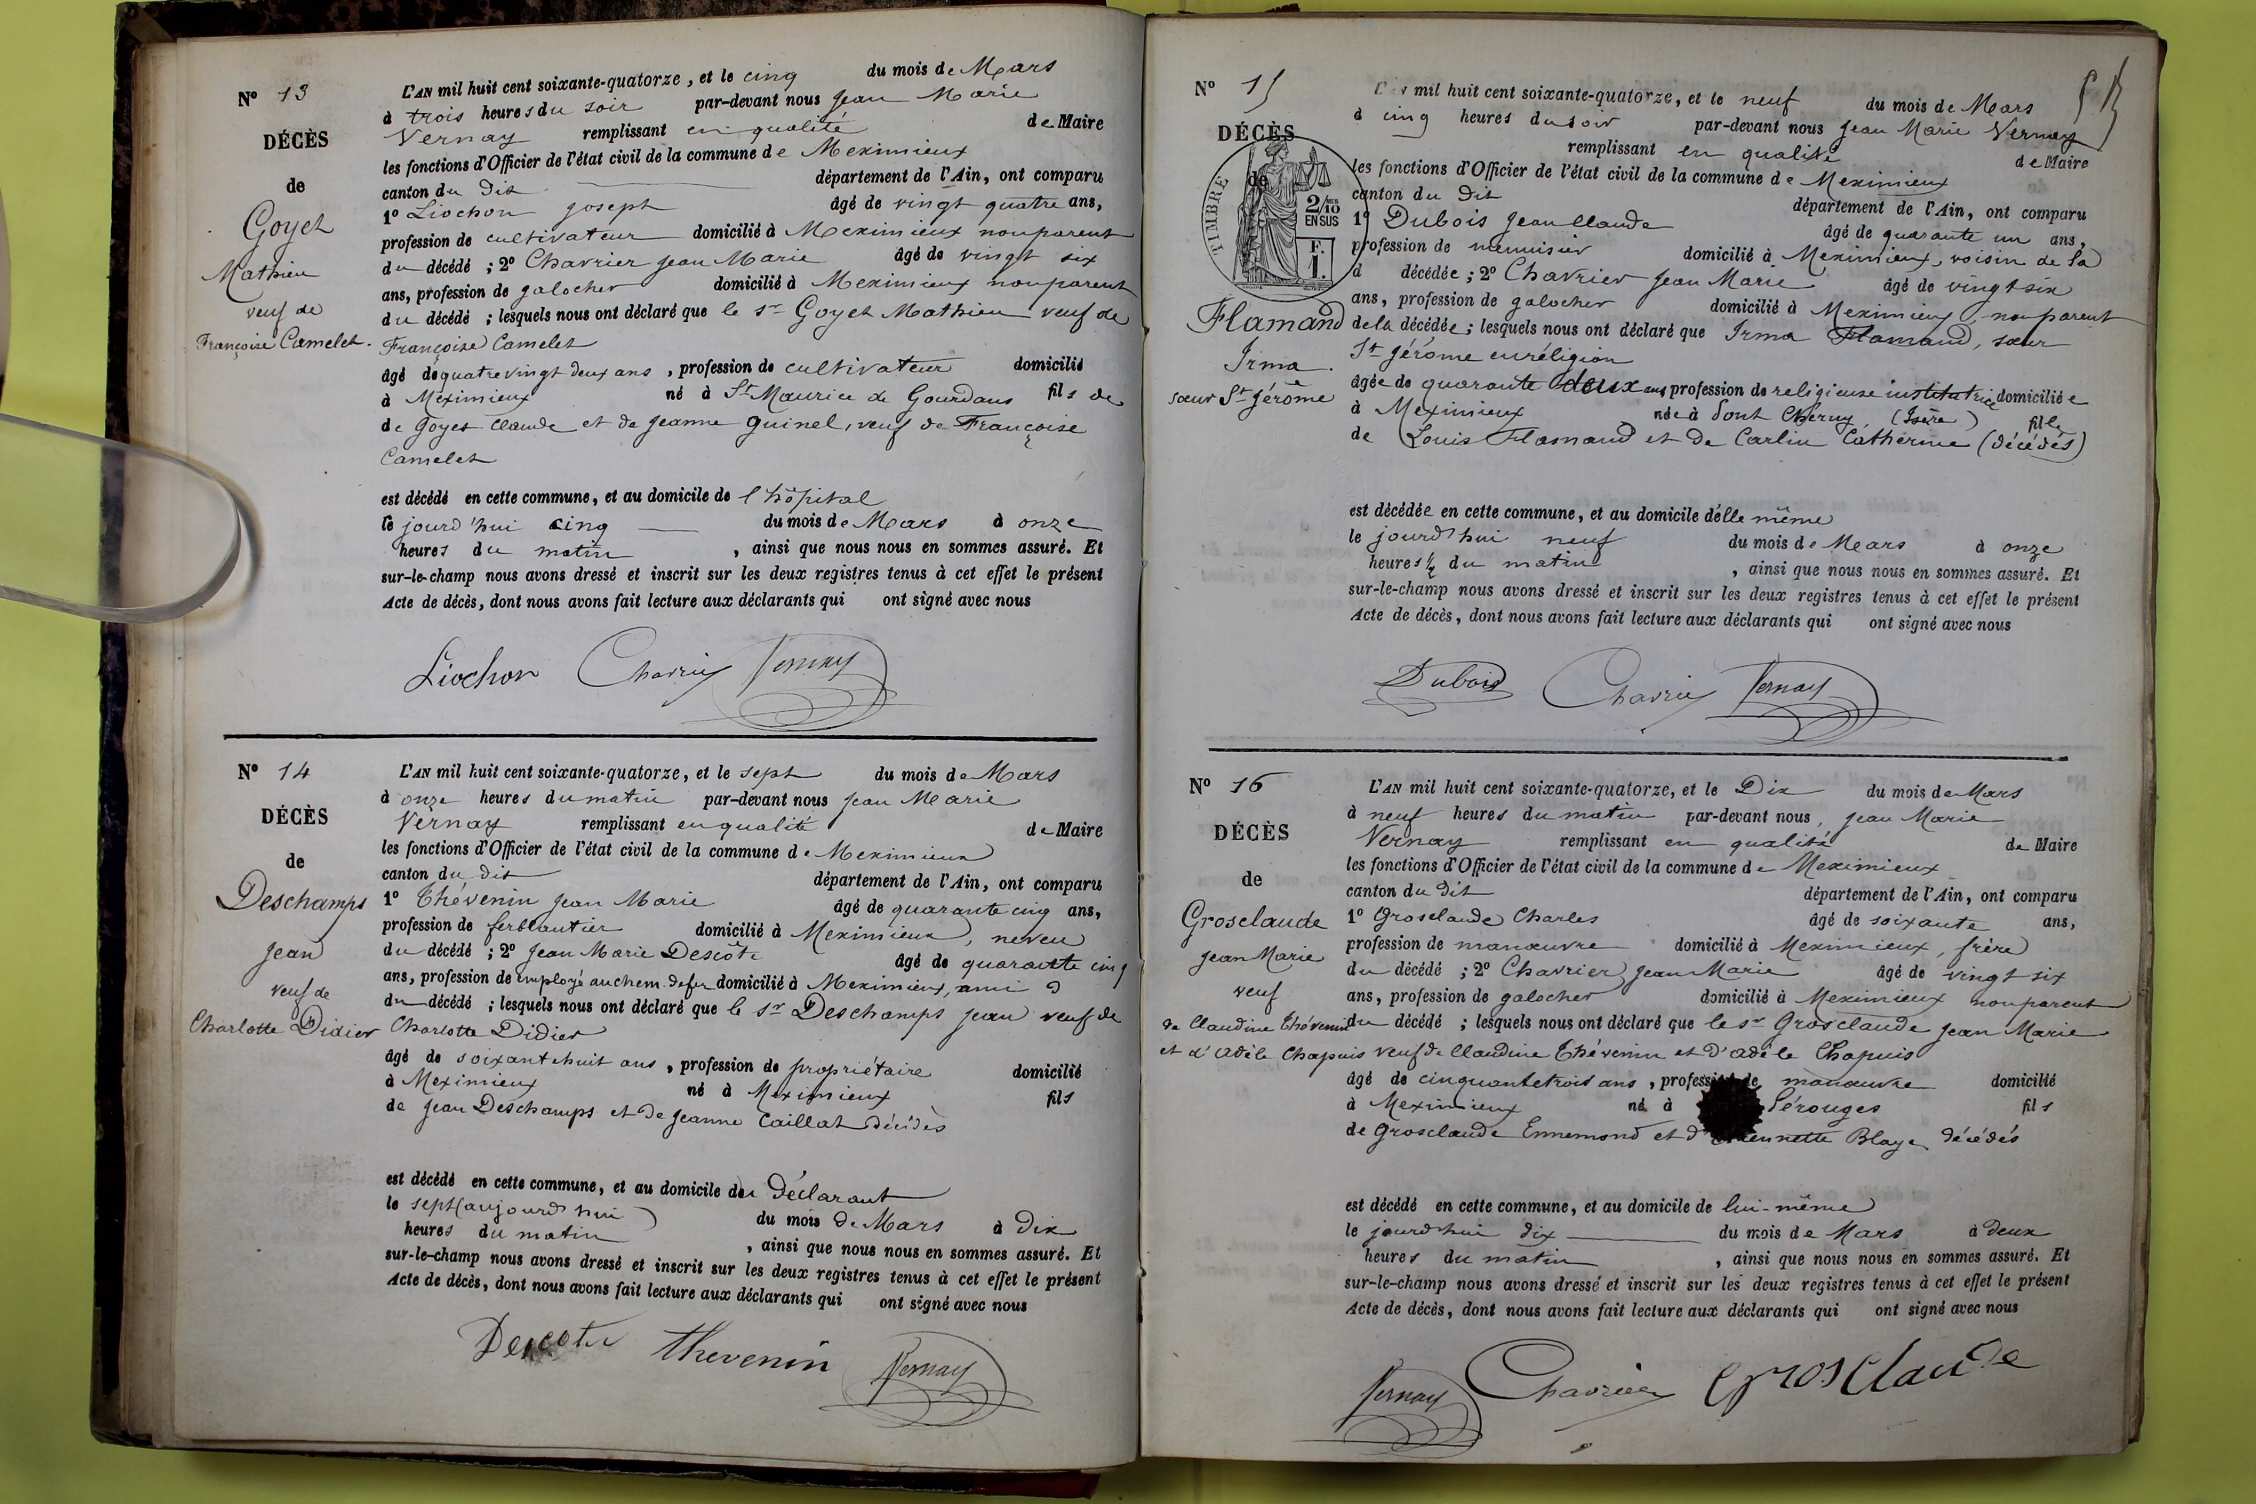 N° 13
DÉCÈS
de
Goyet
Mathieu
veuf de
Françoise Camelet.
L'AN mil huit cent soixante-quatorze, et le cinq du mois de Mars
à trois heures du soir par-devant nous Jean Marie
Vernay remplissant en qualité de Maire
les fonctions d'Officier de l'état civil de la commune de Meximieux
canton du dit département de l'Ain, ont comparu
1° Liochon Joseph âgé de vingt quatre ans,
profession de cultivateur domicilié à Meximieux non parent
du décédé ; 2° Chavrier Jean Marie âgé de vingt six
ans, profession de galocher domicilié à Meximieux non parent
du décédé ; lesquels nous ont déclaré que le Sr Goyet Mathieu veuf de
Françoise Camelet
âgé de quatre vingt deux ans, profession de cultivateur domicilié
à Meximieux né à St Maurice de Gourdans fils de
de Goyet Claude et de Jeanne Guinel, veuf de Françoise
Camelet
est décédé en cette commune, et au domicile de l'hôpital
le jourd'hui cinq du mois de Mars à onze
heures du matin, ainsi que nous nous en sommes assuré. Et
sur-le-champ nous avons dressé et inscrit sur les deux registres tenus à cet effet le présent
Acte de décès, dont nous avons fait lecture aux déclarants qui ont signé avec nous
Liochon Chavrier Vernay
N° 14
DÉCÈS
de
Deschamps
Jean
veuf de
Charlotte Didier
L'AN mil huit cent soixante-quatorze, et le sept du mois de Mars
à onze heures du matin par-devant nous Jean Marie
Vernay remplissant en qualité de Maire
les fonctions d'Officier de l'état civil de la commune de Meximieux
canton du dit département de l'Ain, ont comparu
1° Thévenin Jean Marie âgé de quarante cinq ans,
profession de ferblantier domicilié à Meximieux, neveu
du décédé ; 2° Jean Marie Descôte âgé de quarante cinq
ans, profession de employé au chem. de fer domicilié à Meximieux, ami
du décédé ; lesquels nous ont déclaré que le Sr Deschamps Jean veuf de
Charlotte Didier
âgé de soixante huit ans, profession de propriétaire domicilié
à Meximieux né à Meximieux fils
de Jean Deschamps et de Jeanne Caillat décédés
est décédé en cette commune, et au domicile du Déclarant
le sept (aujourd'hui) du mois de Mars à dix
heures du matin, ainsi que nous nous en sommes assuré. Et
sur-le-champ nous avons dressé et inscrit sur les deux registres tenus à cet effet le présent
Acte de décès, dont nous avons fait lecture aux déclarants qui ont signé avec nous
Descote Thevenin Vernay
N° 15
DÉCÈS
de
TIMBRE
2/10
EN SUS
F.
1.
Flamand
Irma.
sœur St Jérôme
L'AN mil huit cent soixante-quatorze, et le neuf du mois de Mars
à cinq heures du soir par-devant nous Jean Marie Vernay
remplissant en qualité de Maire
les fonctions d'Officier de l'état civil de la commune de Meximieux
canton du dit département de l'Ain, ont comparu
1° Dubois Jean Claude âgé de quarante un ans,
profession de menuisier domicilié à Meximieux, voisin de la
d décédée ; 2° Chavrier Jean Marie âgé de vingt six
ans, profession de galocher domicilié à Meximieux, non parent
de la décédée ; lesquels nous ont déclaré que Irma Flamand, sœur
St Jérôme en réligion
âgée de quarante deux ans, profession de religieuse institutrice domiciliée
à Meximieux née à Pont Chéruy (Isère) fille
de Louis Flamand et de Carlin Catherine (décédés)
est décédée en cette commune, et au domicile d'elle même
le jourd'hui neuf du mois de Mars à onze
heures ½ du matin, ainsi que nous nous en sommes assuré. Et
sur-le-champ nous avons dressé et inscrit sur les deux registres tenus à cet effet le présent
Acte de décès, dont nous avons fait lecture aux déclarants qui ont signé avec nous
Dubois Chavrier Vernay
N° 16
DÉCÈS
de
Grosclaude
Jean Marie
veuf
de Claudine Thévenin
et d'Adèle Chapuis
L'AN mil huit cent soixante-quatorze, et le Dix du mois de Mars
à neuf heures du matin par-devant nous, Jean Marie
Vernay remplissant en qualité de Maire
les fonctions d'Officier de l'état civil de la commune de Meximieux
canton du dit département de l'Ain, ont comparu
1° Grosclaude Charles âgé de soixante ans,
profession de manœuvre domicilié à Meximieux, frère
du décédé ; 2° Chavrier Jean Marie âgé de vingt six
ans, profession de galocher domicilié à Meximieux non parent
du décédé ; lesquels nous ont déclaré que le Sr Grosclaude Jean Marie
veuf de Claudine Thévenin et d'Adèle Chapuis
âgé de cinquante trois ans, profession de manœuvre domicilié
à Meximieux né à Pérouges fils
de Grosclaude Ennemond et d' Blaye décédés
est décédé en cette commune, et au domicile de lui-même
le jourd'hui dix du mois de Mars à deux
heures du matin, ainsi que nous nous en sommes assuré. Et
sur-le-champ nous avons dressé et inscrit sur les deux registres tenus à cet effet le présent
Acte de décès, dont nous avons fait lecture aux déclarants qui ont signé avec nous
Vernay Chavrier Grosclaude